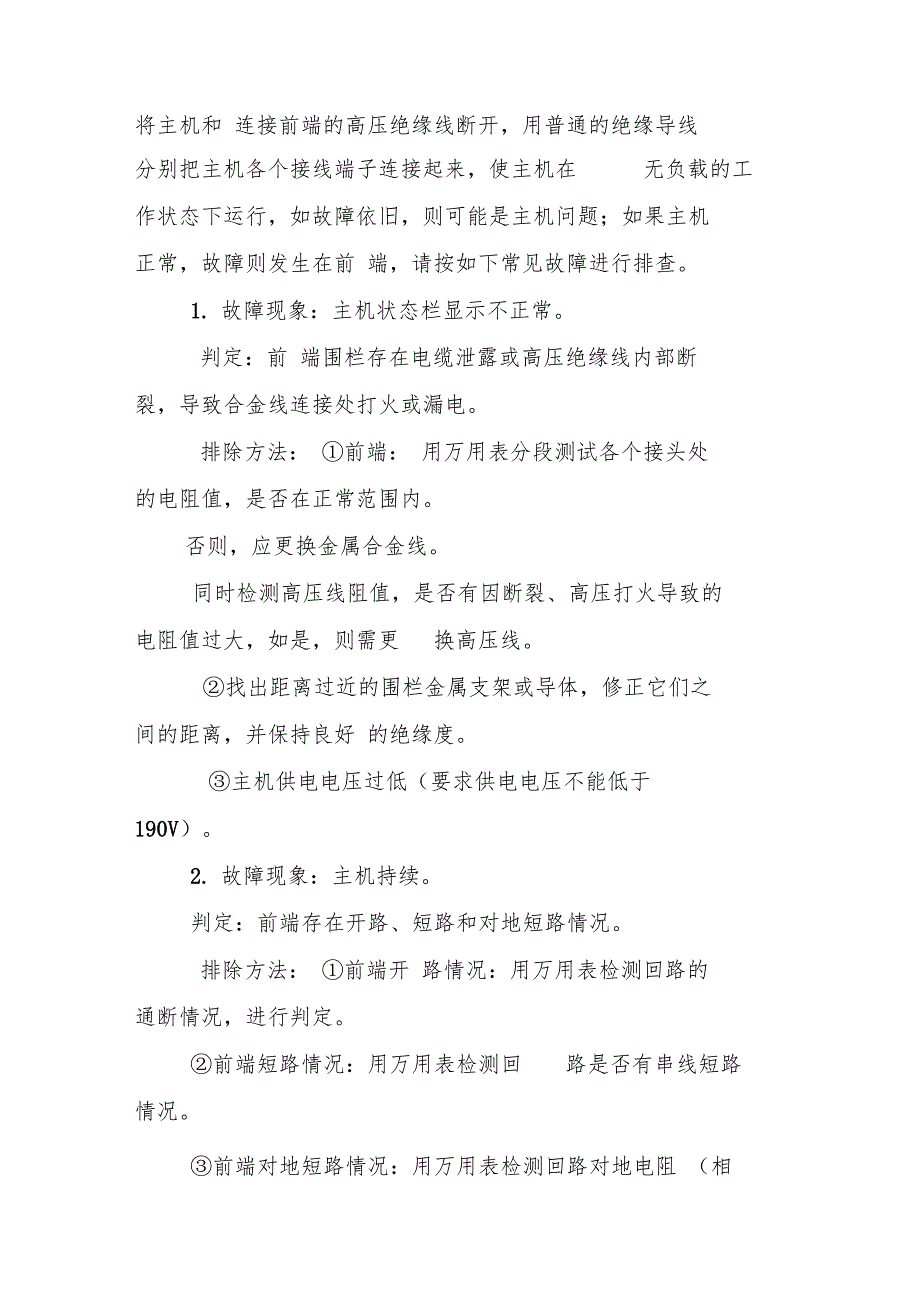 将主机和 连接前端的高压绝缘线断开，用普通的绝缘导线
分别把主机各个接线端子连接起来，使主机在 无负载的工
作状态下运行，如故障依旧，则可能是主机问题；如果主机
正常，故障则发生在前 端，请按如下常见故障进行排查。
1. 故障现象：主机状态栏显示不正常。
判定：前 端围栏存在电缆泄露或高压绝缘线内部断
裂，导致合金线连接处打火或漏电。
排除方法： ①前端： 用万用表分段测试各个接头处
的电阻值，是否在正常范围内。
否则，应更换金属合金线。
同时检测高压线阻值，是否有因断裂、高压打火导致的
电阻值过大，如是，则需更 换高压线。
②找出距离过近的围栏金属支架或导体，修正它们之
间的距离，并保持良好 的绝缘度。
③主机供电电压过低（要求供电电压不能低于
190V）。
2. 故障现象：主机持续。
判定：前端存在开路、短路和对地短路情况。
排除方法： ①前端开 路情况：用万用表检测回路的
通断情况，进行判定。
②前端短路情况：用万用表检测回 路是否有串线短路
情况。
③前端对地短路情况：用万用表检测回路对地电阻 （相